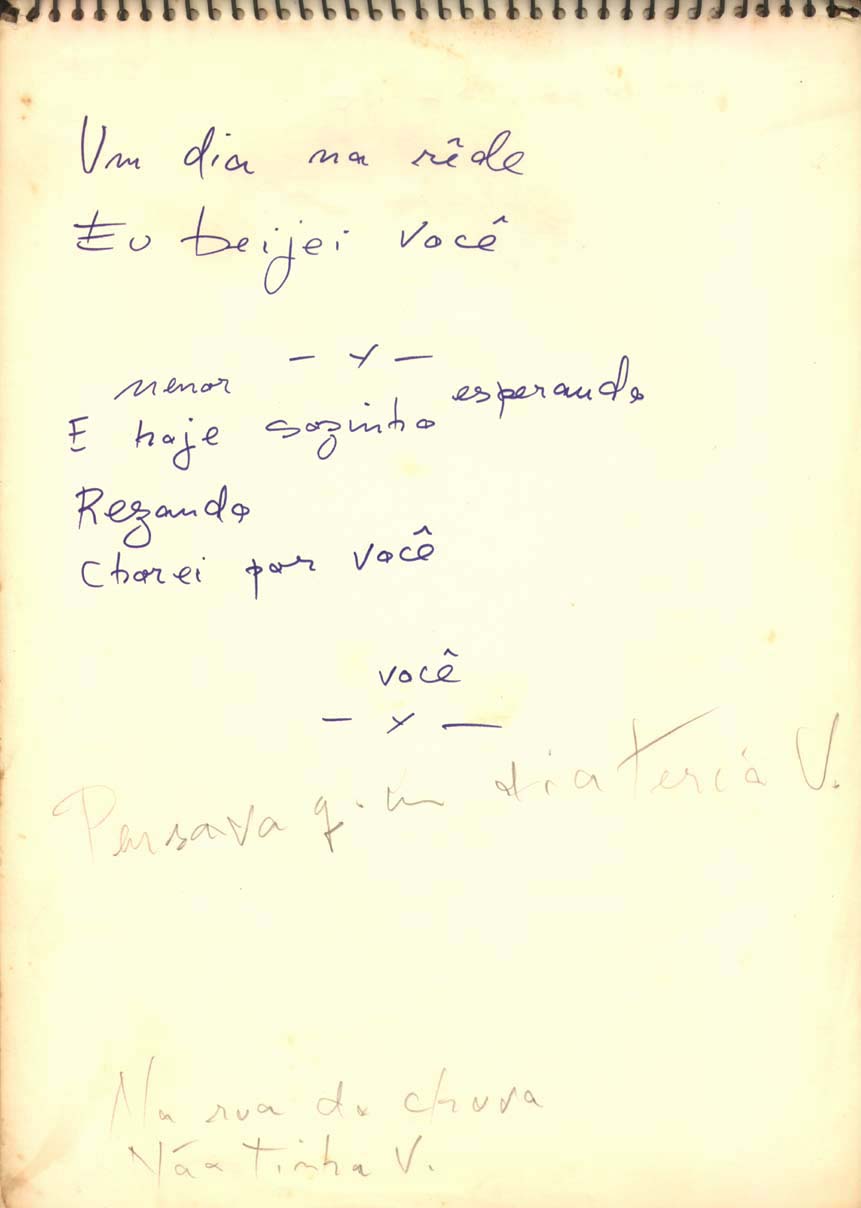 Um dia na rêde
Eu beijei você
— x —
menor
E hoje sozinho esperando
Rezando
Chorei por você
você
— x —
Pensava q. um dia teria V.
Na rua da chuva
Não tinha V.